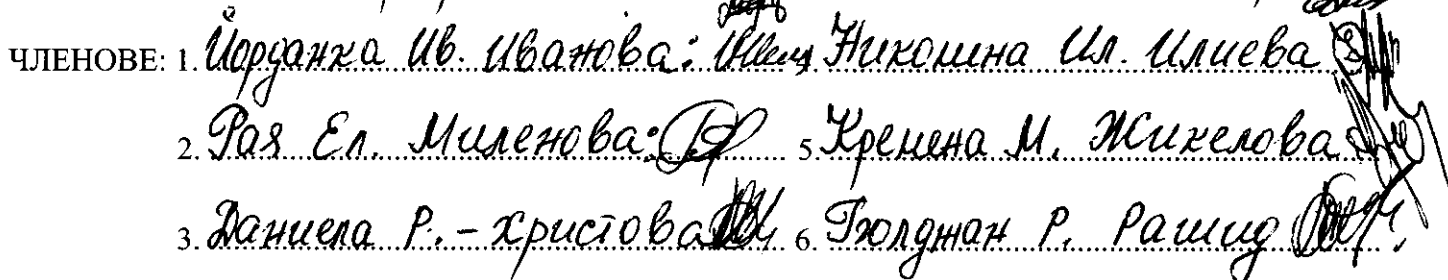 ЧЛЕНОВЕ: 1. Йорданка Ив. Иванова: 4. Николина Ил. Илиева
2. Рая Ел. Миленова: 5. Кремена М. Жикелова
3. Даниела Р. - Христова 6. Гюлджан Р. Рашид